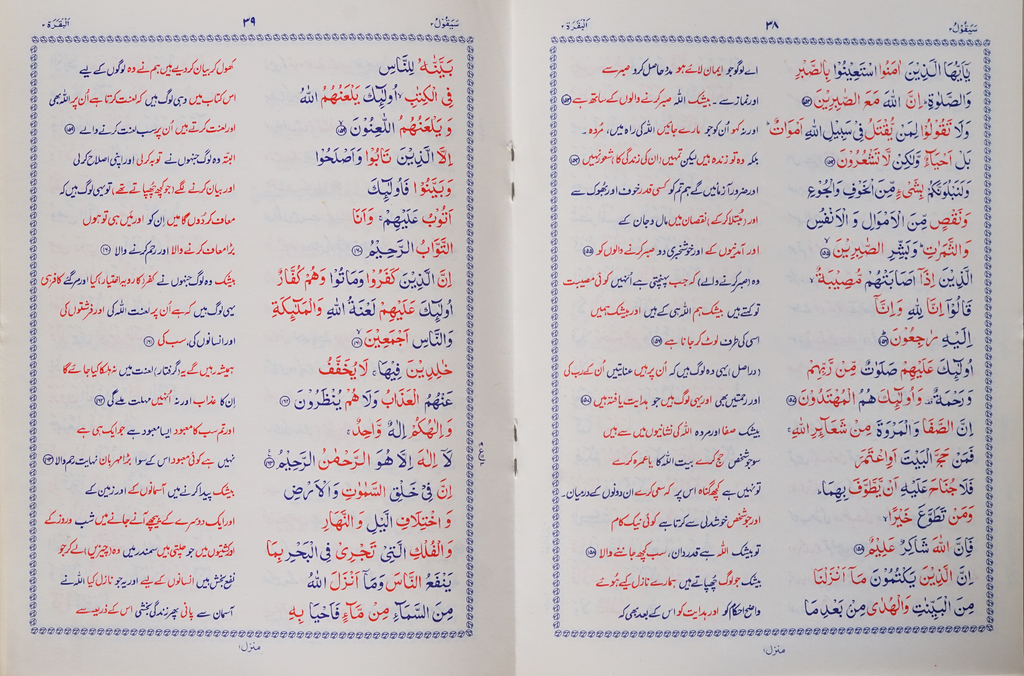 سَیَقُوْلُ ۲ ۳۸ اَلْبَقَرَة ۲
یٰۤاَیُّهَا الَّذِیْنَ اٰمَنُوا اسْتَعِیْنُوْا بِالصَّبْرِ اے لوگو جو ایمان لائے ہو مدد حاصل کرو صبر سے
وَالصَّلٰوةِ ؕ اِنَّ اللّٰهَ مَعَ الصّٰبِرِیْنَ ﴿۱۵۳﴾ اور نماز سے ۔ بیشک اللہ صبر کرنے والوں کے ساتھ ہے ﴿۱۵۳﴾
وَلَا تَقُوْلُوْا لِمَنْ یُّقْتَلُ فِیْ سَبِیْلِ اللّٰهِ اَمْوَاتٌ ؕ اور نہ کہو اُن کو جو مارے جائیں اللہ کی راہ میں، مُردہ ۔
بَلْ اَحْیَآءٌ وَّلٰكِنْ لَّا تَشْعُرُوْنَ ﴿۱۵۴﴾ بلکہ وہ تو زندہ ہیں لیکن تمہیں (ان کی زندگی کا) شعور نہیں ﴿۱۵۴﴾
وَلَنَبْلُوَنَّكُمْ بِشَیْءٍ مِّنَ الْخَوْفِ وَالْجُوْعِ اور ضرور آزمائیں گے ہم تم کو کسی قدر خوف اور بھوک سے
وَنَقْصٍ مِّنَ الْاَمْوَالِ وَ الْاَنْفُسِ اور (مبتلا کر کے) نقصان میں مال و جان کے
وَالثَّمَرٰتِ ؕ وَبَشِّرِ الصّٰبِرِیْنَ ﴿۱۵۵﴾ اور آمدنیوں کے اور خوشخبری دو صبر کرنے والوں کو ﴿۱۵۵﴾
الَّذِیْنَ اِذَاۤ اَصَابَتْهُمْ مُّصِیْبَةٌ ۙ وہ (صبر کرنے والے) کہ جب پہنچتی ہے اُنہیں کوئی مصیبت
قَالُوْۤا اِنَّا لِلّٰهِ وَ اِنَّاۤ تو کہتے ہیں بیشک ہم اللہ ہی کے ہیں اور بیشک ہمیں
اِلَیْهِ رٰجِعُوْنَ ﴿۱۵۶﴾ اسی کی طرف لوٹ کر جانا ہے ﴿۱۵۶﴾
اُولٰٓئِكَ عَلَیْهِمْ صَلَوٰتٌ مِّنْ رَّبِّهِمْ دراصل یہی وہ لوگ ہیں کہ اُن پر ہیں عنایتیں اُن کے رب کی
وَرَحْمَةٌ ۫ وَ اُولٰٓئِكَ هُمُ الْمُهْتَدُوْنَ ﴿۱۵۷﴾ اور رحمتیں بھی اور یہی لوگ ہیں جو ہدایت یافتہ ہیں ﴿۱۵۷﴾
اِنَّ الصَّفَا وَالْمَرْوَةَ مِنْ شَعَآئِرِ اللّٰهِ ۚ بیشک صفا اور مروہ اللہ کی نشانیوں میں سے ہیں
فَمَنْ حَجَّ الْبَیْتَ اَوِاعْتَمَرَ سو جو شخص حج کرے بیت اللہ کا یا عمرہ کرے
فَلَا جُنَاحَ عَلَیْهِ اَنْ یَّطَّوَّفَ بِهِمَا ؕ تو نہیں ہے کچھ گناہ اس پر کہ سعی کرے ان دونوں کے درمیان۔
وَمَنْ تَطَوَّعَ خَیْرًا ۙ اور جو شخص خوشدلی سے کرتا ہے کوئی نیک کام
فَاِنَّ اللّٰهَ شَاكِرٌ عَلِیْمٌ ﴿۱۵۸﴾ تو بیشک اللہ ہے قدر دان، سب کچھ جاننے والا ﴿۱۵۸﴾
اِنَّ الَّذِیْنَ یَكْتُمُوْنَ مَاۤ اَنْزَلْنَا بیشک جو لوگ چھپاتے ہیں ہمارے نازل کیے ہوئے
مِنَ الْبَیِّنٰتِ وَالْهُدٰی مِنْۢ بَعْدِ مَا واضح احکام کو اور ہدایت کو اس کے بعد بھی کہ
منزل ۱
سَیَقُوْلُ ۲ ۳۹ اَلْبَقَرَة ۲
بَیَّنّٰهُ لِلنَّاسِ کھول کر بیان کر دیے ہیں ہم نے وہ لوگوں کے لیے
فِی الْكِتٰبِ ۙ اُولٰٓئِكَ یَلْعَنُهُمُ اللّٰهُ اس کتاب میں وہی لوگ ہیں کہ لعنت کرتا ہے اُن پر اللہ بھی
وَ یَلْعَنُهُمُ اللّٰعِنُوْنَ ﴿۱۵۹﴾ اور لعنت کرتے ہیں اُن پر سب لعنت کرنے والے ﴿۱۵۹﴾
اِلَّا الَّذِیْنَ تَابُوْا وَاَصْلَحُوْا البتہ وہ لوگ جنہوں نے توبہ کر لی اور اپنی اصلاح کر لی
وَبَیَّنُوْا فَاُولٰٓئِكَ اور بیان کرنے لگے (جو کچھ چھپاتے تھے) تو یہی لوگ ہیں کہ
اَتُوْبُ عَلَیْهِمْ ۚ وَاَنَا معاف کردوں گا میں اِن کو اور میں ہی تو ہوں
التَّوَّابُ الرَّحِیْمُ ﴿۱۶۰﴾ بڑا معاف کرنے والا اور رحم کرنے والا ﴿۱۶۰﴾
اِنَّ الَّذِیْنَ كَفَرُوْا وَمَاتُوْا وَهُمْ كُفَّارٌ بیشک وہ لوگ جنہوں نے کفر (کا رویہ اختیار) کیا اور مر گئے کافر ہی
اُولٰٓئِكَ عَلَیْهِمْ لَعْنَةُ اللّٰهِ وَالْمَلٰٓئِكَةِ یہی لوگ ہیں کہ ہے اُن پر لعنت اللہ کی اور فرشتوں کی
وَالنَّاسِ اَجْمَعِیْنَ ﴿۱۶۱﴾ اور انسانوں کی، سب کی ﴿۱۶۱﴾
خٰلِدِیْنَ فِیْهَا ۚ لَا یُخَفَّفُ ہمیشہ رہیں گے یہ (گرفتار) لعنت میں نہ ہلکا کیا جائے گا
عَنْهُمُ الْعَذَابُ وَلَا هُمْ یُنْظَرُوْنَ ﴿۱۶۲﴾ اِن کا عذاب اور نہ اُنہیں مہلت ملے گی ﴿۱۶۲﴾
وَاِلٰهُكُمْ اِلٰهٌ وَّاحِدٌ ۚ اور تم سب کا معبود ایسا معبود ہے جو ایک ہی ہے
لَاۤ اِلٰهَ اِلَّا هُوَ الرَّحْمٰنُ الرَّحِیْمُ ﴿۱۶۳﴾ نہیں ہے کوئی معبود اس کے سوا بڑا مہربان نہایت رحم والا ﴿۱۶۳﴾
اِنَّ فِیْ خَلْقِ السَّمٰوٰتِ وَ الْاَرْضِ بیشک پیدا کرنے میں آسمانوں کے اور زمین کے
وَ اخْتِلَافِ الَّیْلِ وَ النَّهَارِ اور ایک دوسرے کے پیچھے آنے جانے میں شب و روز کے
وَالْفُلْكِ الَّتِیْ تَجْرِیْ فِی الْبَحْرِ بِمَا اور کشتیوں میں جو چلتی ہیں سمندر میں وہ (چیزیں) لے کر جو
یَنْفَعُ النَّاسَ وَمَاۤ اَنْزَلَ اللّٰهُ نفع بخش ہیں انسانوں کے لیے اور یہ جو نازل کیا اللہ نے
مِنَ السَّمَآءِ مِنْ مَّآءٍ فَاَحْیَا بِهِ آسمان سے پانی پھر زندگی بخشی اس کے ذریعہ سے
منزل ۱